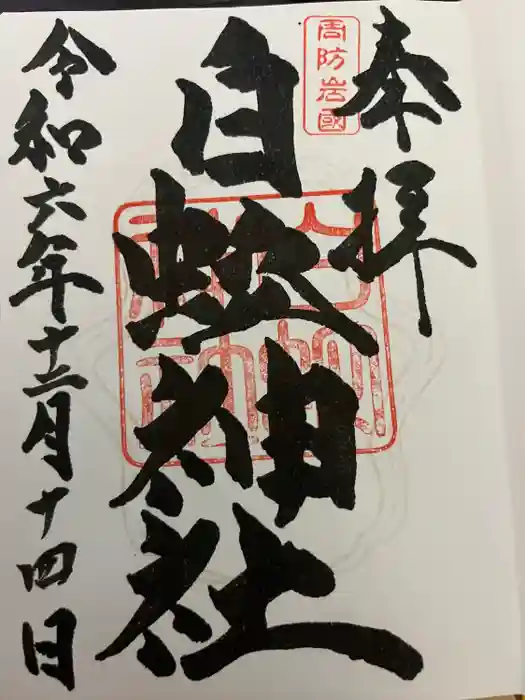 奉拝
周防岩國
白蛇神社
令和六年十二月十四日